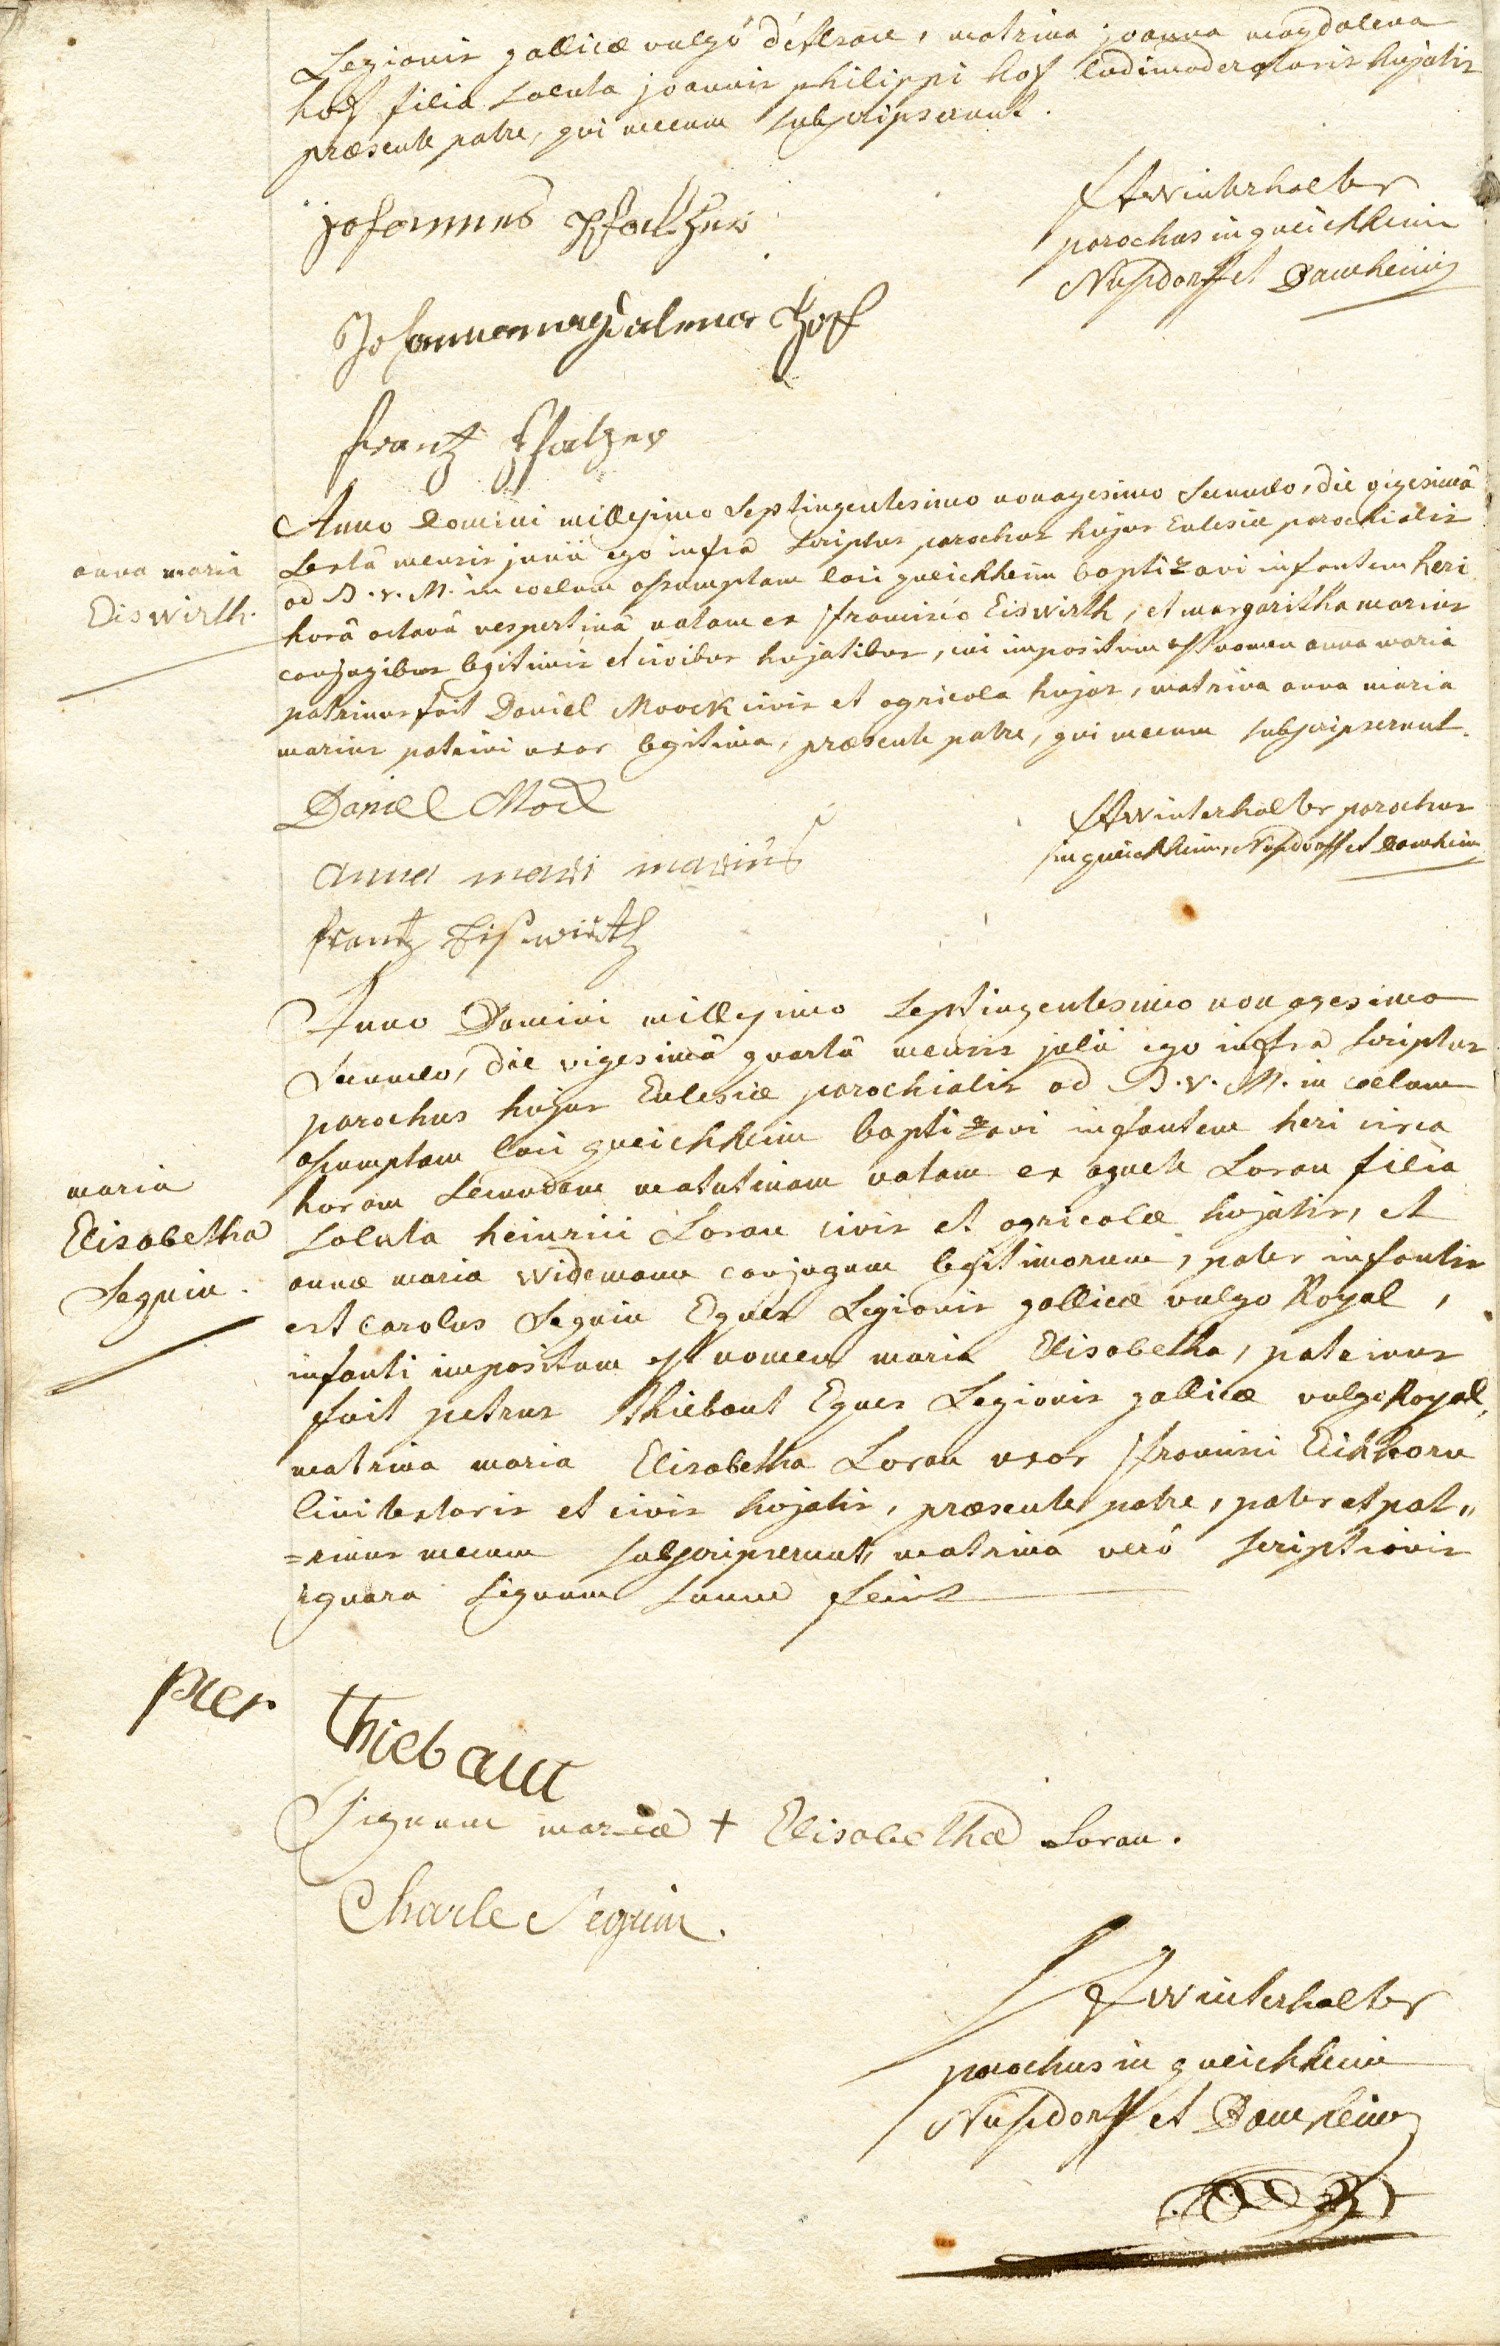 Legionis gallicæ vulgó d'alsace, matrina joanna magdalena
hoff filia soluta joannis philippi hoff ludimoderatoris hujatis
præsente patre, qui mecum subscripserunt.
johannes Pfaltzer
FA winterhalter
parochus in queichheim
Nusdorff et Damheim
Johannamagdalena Hoff
frantz Pfaltzer
Anno Domini millesimo septingentesimo nonagesimo secundo, die vigesimâ
sextâ mensis junii ego infra scriptus parochus hujus Eclesiæ parochialis
anna maria
Eiswirth.
ad B. v. M. in coelum assumptam loci queichheim baptizavi infantem heri
horâ octavâ vespertinâ natam ex francisco Eiswirth, et margaritha marius
conjugibus legitimis et civibus hujatibus, cui impositum est nomen anna maria
patrinus fuit Daniel Moock civis et agricola hujas, matrina anna maria
marius patrini uxor legitima, præsente patre, qui mecum subscripserunt.
Daniel Mock
FA winterhalter parochus
in queichheim, Nusdorff et damheim
anna mari marius
frantz Eiswirth
Anno Domini millesimo septingentesimo nonagesimo
secundo, die vigesimâ quartâ mensis julii ego infra scriptus
parochus hujus Eclesiæ parochialis ad B. v. M. in coelum
assumptam loci queichheim baptizavi infantem heri circa
horam secundam matutinam natam ex agnete Loran filia
maria
Elisabetha
Seguin.
soluta heinrici Loran civis et agricolæ hujatis, et
annæ maria widemann conjugum legitimorum, pater infantis
est carolus Seguin Eques Legionis gallicæ vulgo Royal,
infanti impositum est nomen maria Elisabetha, patrinus
fuit petrus thiebaut Eques Legionis gallicæ vulgo Royal,
matrina maria Elisabetha Loran uxor francisci Eichhorn
linitextoris et civis hujatis, præsente patre, pater et pat„
=rinus mecum subscripserunt, matrina verò scriptionis
ignara signum suum fecit
pier thiebaut
Signum mariæ + Elisabethæ Loran.
Charle Seguin.
FA winterhalter
parochus in queichheim
Nusdorff et Damheim